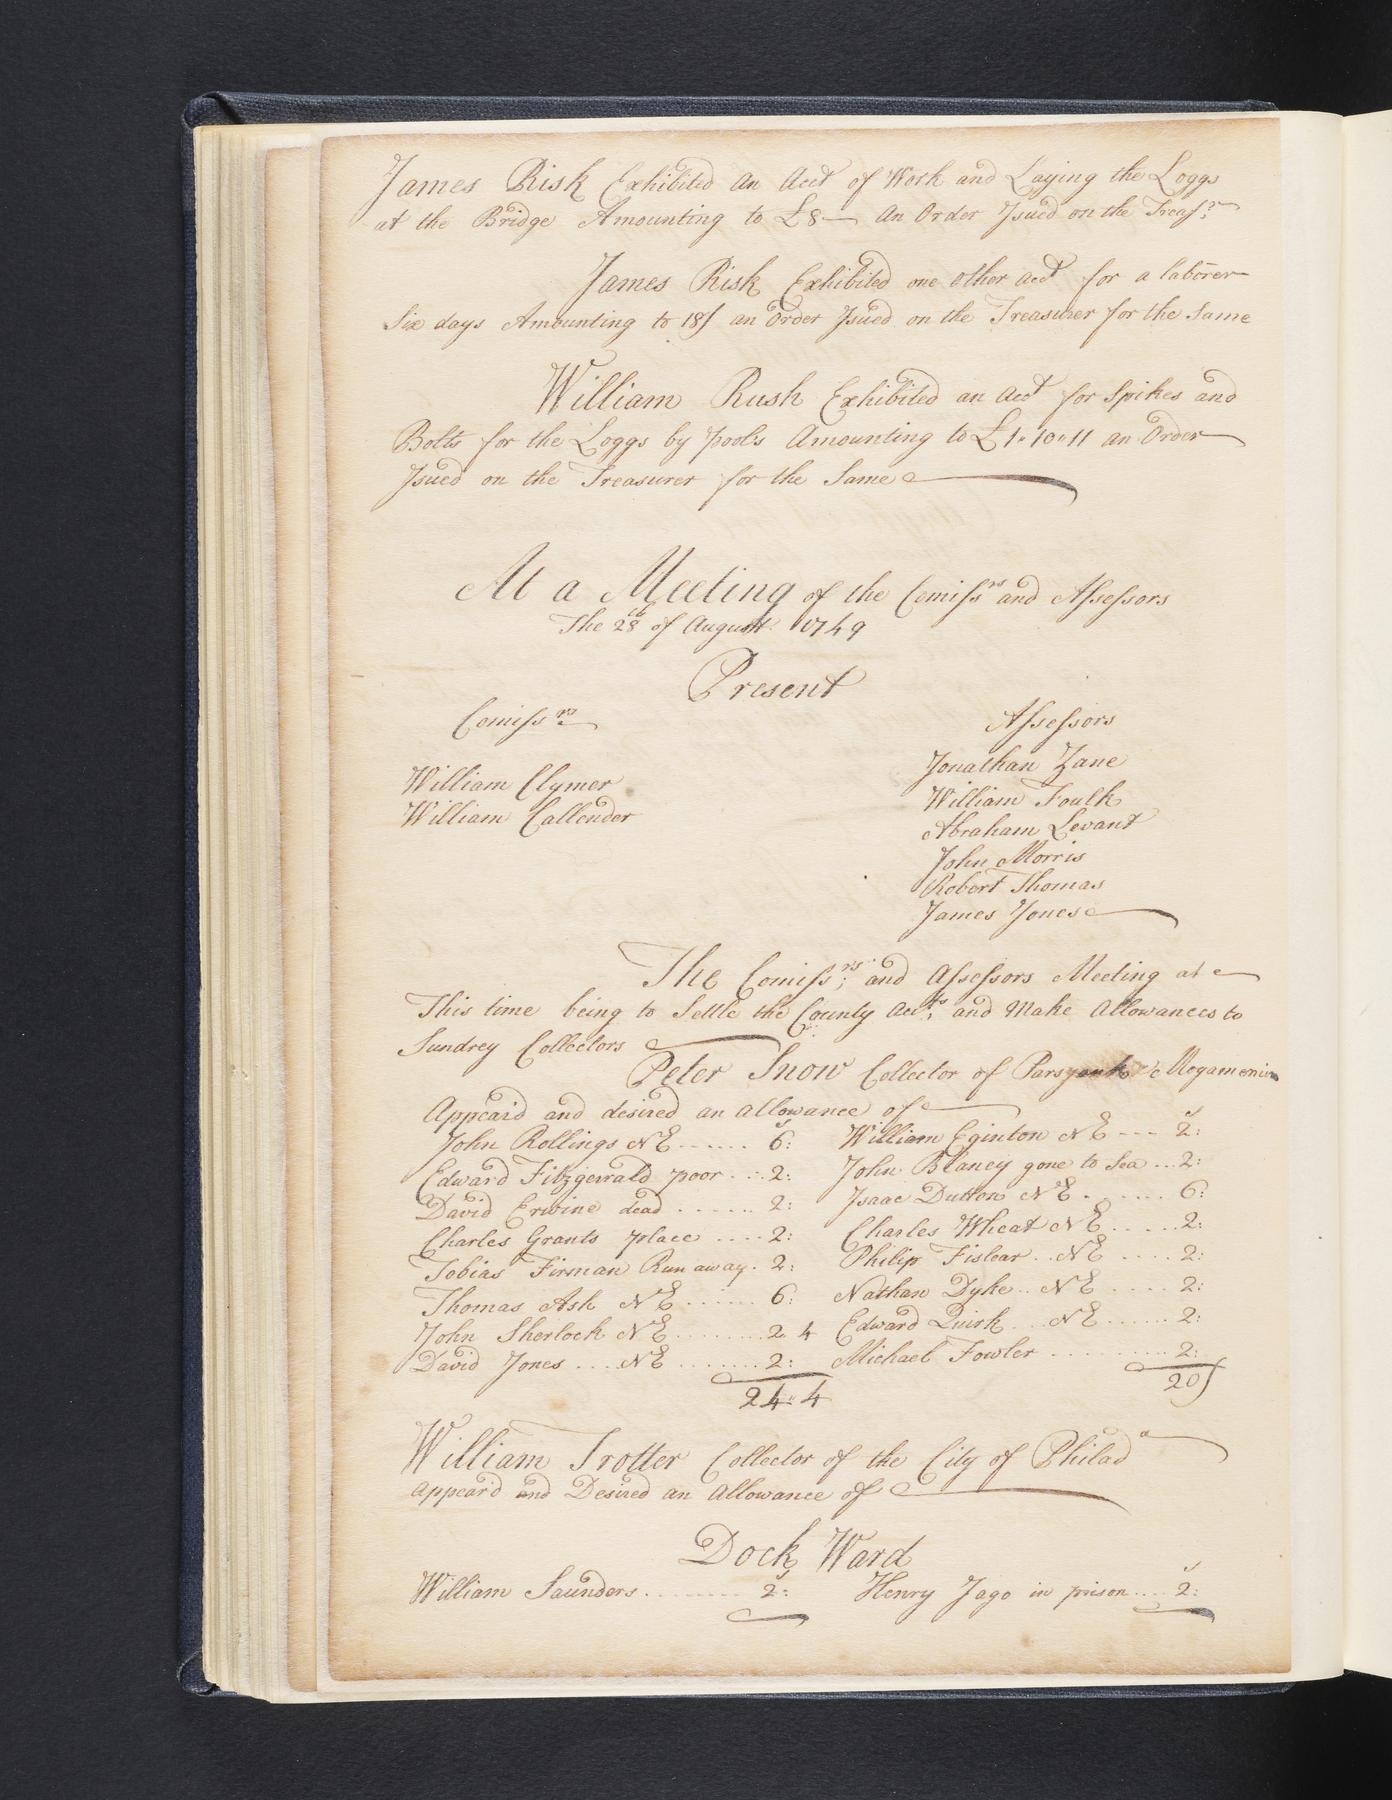 James Risk Exhibited an Acct of Work and Laying the Loggs
at the Bridge Amounting to £8— an Order Isued on the Treasr
James Risk Exhibited one other acct for a laborer
Six days Amounting to 18/ an Order Isued on the Treasurer for the Same
William Rush Exhibited an acct for Spikes and
Bolts for the Loggs by pool's Amounting to £1"10"11 an Order
Isued on the Treasurer for the Same
At a Meeting of the Comissrs and Assessors
The 28th of August 1749
Present
Comissrs
Assessors
William Clymer
William Callender
Jonathan Zane
William Foulk
Abraham Levant
John Morris
Robert Thomas
James Jones
The Comissrs and Assessors Meeting at
This time being to Settle the County Accts and Make Allowances to
Sundrey Collectors
Peter Snow Collector of Parsyunk & Mogamenin
Appeard and desired an allowance of
John Rollings NE ...... 6:
Edward Fitzgerrald poor ... 2:
David Erwine dead ....... 2:
Charles Grants place .... 2:
Tobias Firman Run away . 2:
Thomas Ash NE ...... 6:
John Sherlock NE ........ 2 4
David Jones .... NE ........ 2:
24:4
William Eginton NE --- 2:
John Blaney gone to Sea ... 2:
Isaac Dutton NE ....... 6:
Charles Wheat NE ..... 2:
Philip Fislear .. NE .... 2:
Nathan Dyke .. NE .... 2:
Edward Quirk ... NE ...... 2:
Michael Fowler .......... 2:
20/
William Trotter Collector of the City of Philada
appeard and Desired an allowance of
Dock Ward
William Saunders ......... 2:
Henry Jago in prison .... 2: